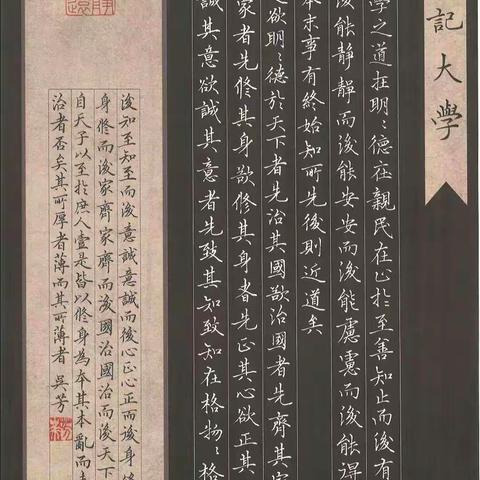 記大學
學之道在明〻德在親民在止於至善知止而後有
後能静静而後能安安而後能慮慮而後能得
本末事有終始知所先後則近道矣
欲明〻德於天下者先治其國欲治國者先齊其家
家者先修其身欲修其身者先正其心欲正其
誠其意欲誠其意者先致其知致知在格物〻格
後知至知至而後意誠意誠而後心正心正而後身修
身修而後家齊家齊而後國治國治而後天下
自天子以至於庶人壹是皆以修身為本其本亂而末
治者否矣其所厚者薄而其所薄者 吳芳